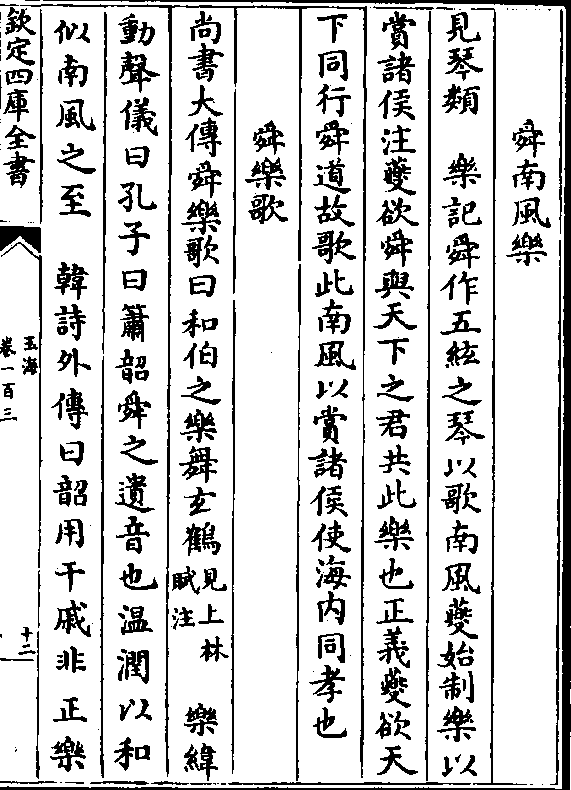 舜南風樂
見琴類　樂記舜作五絃之琴以歌南風夔始制樂以
賞諸侯注夔欲舜與天下之君共此樂也正義夔欲天
下同行舜道故歌此南風以賞諸侯使海内同孝也
舜樂歌
尚書大傳舜樂歌曰和伯之樂舞玄鶴見上林賦注　樂緯
動聲儀曰孔子曰簫韶舜之遺音也温潤以和
似南風之至　韓詩外傳曰韶用干戚非正樂
欽定四庫全書
玉海
卷一百三
十二